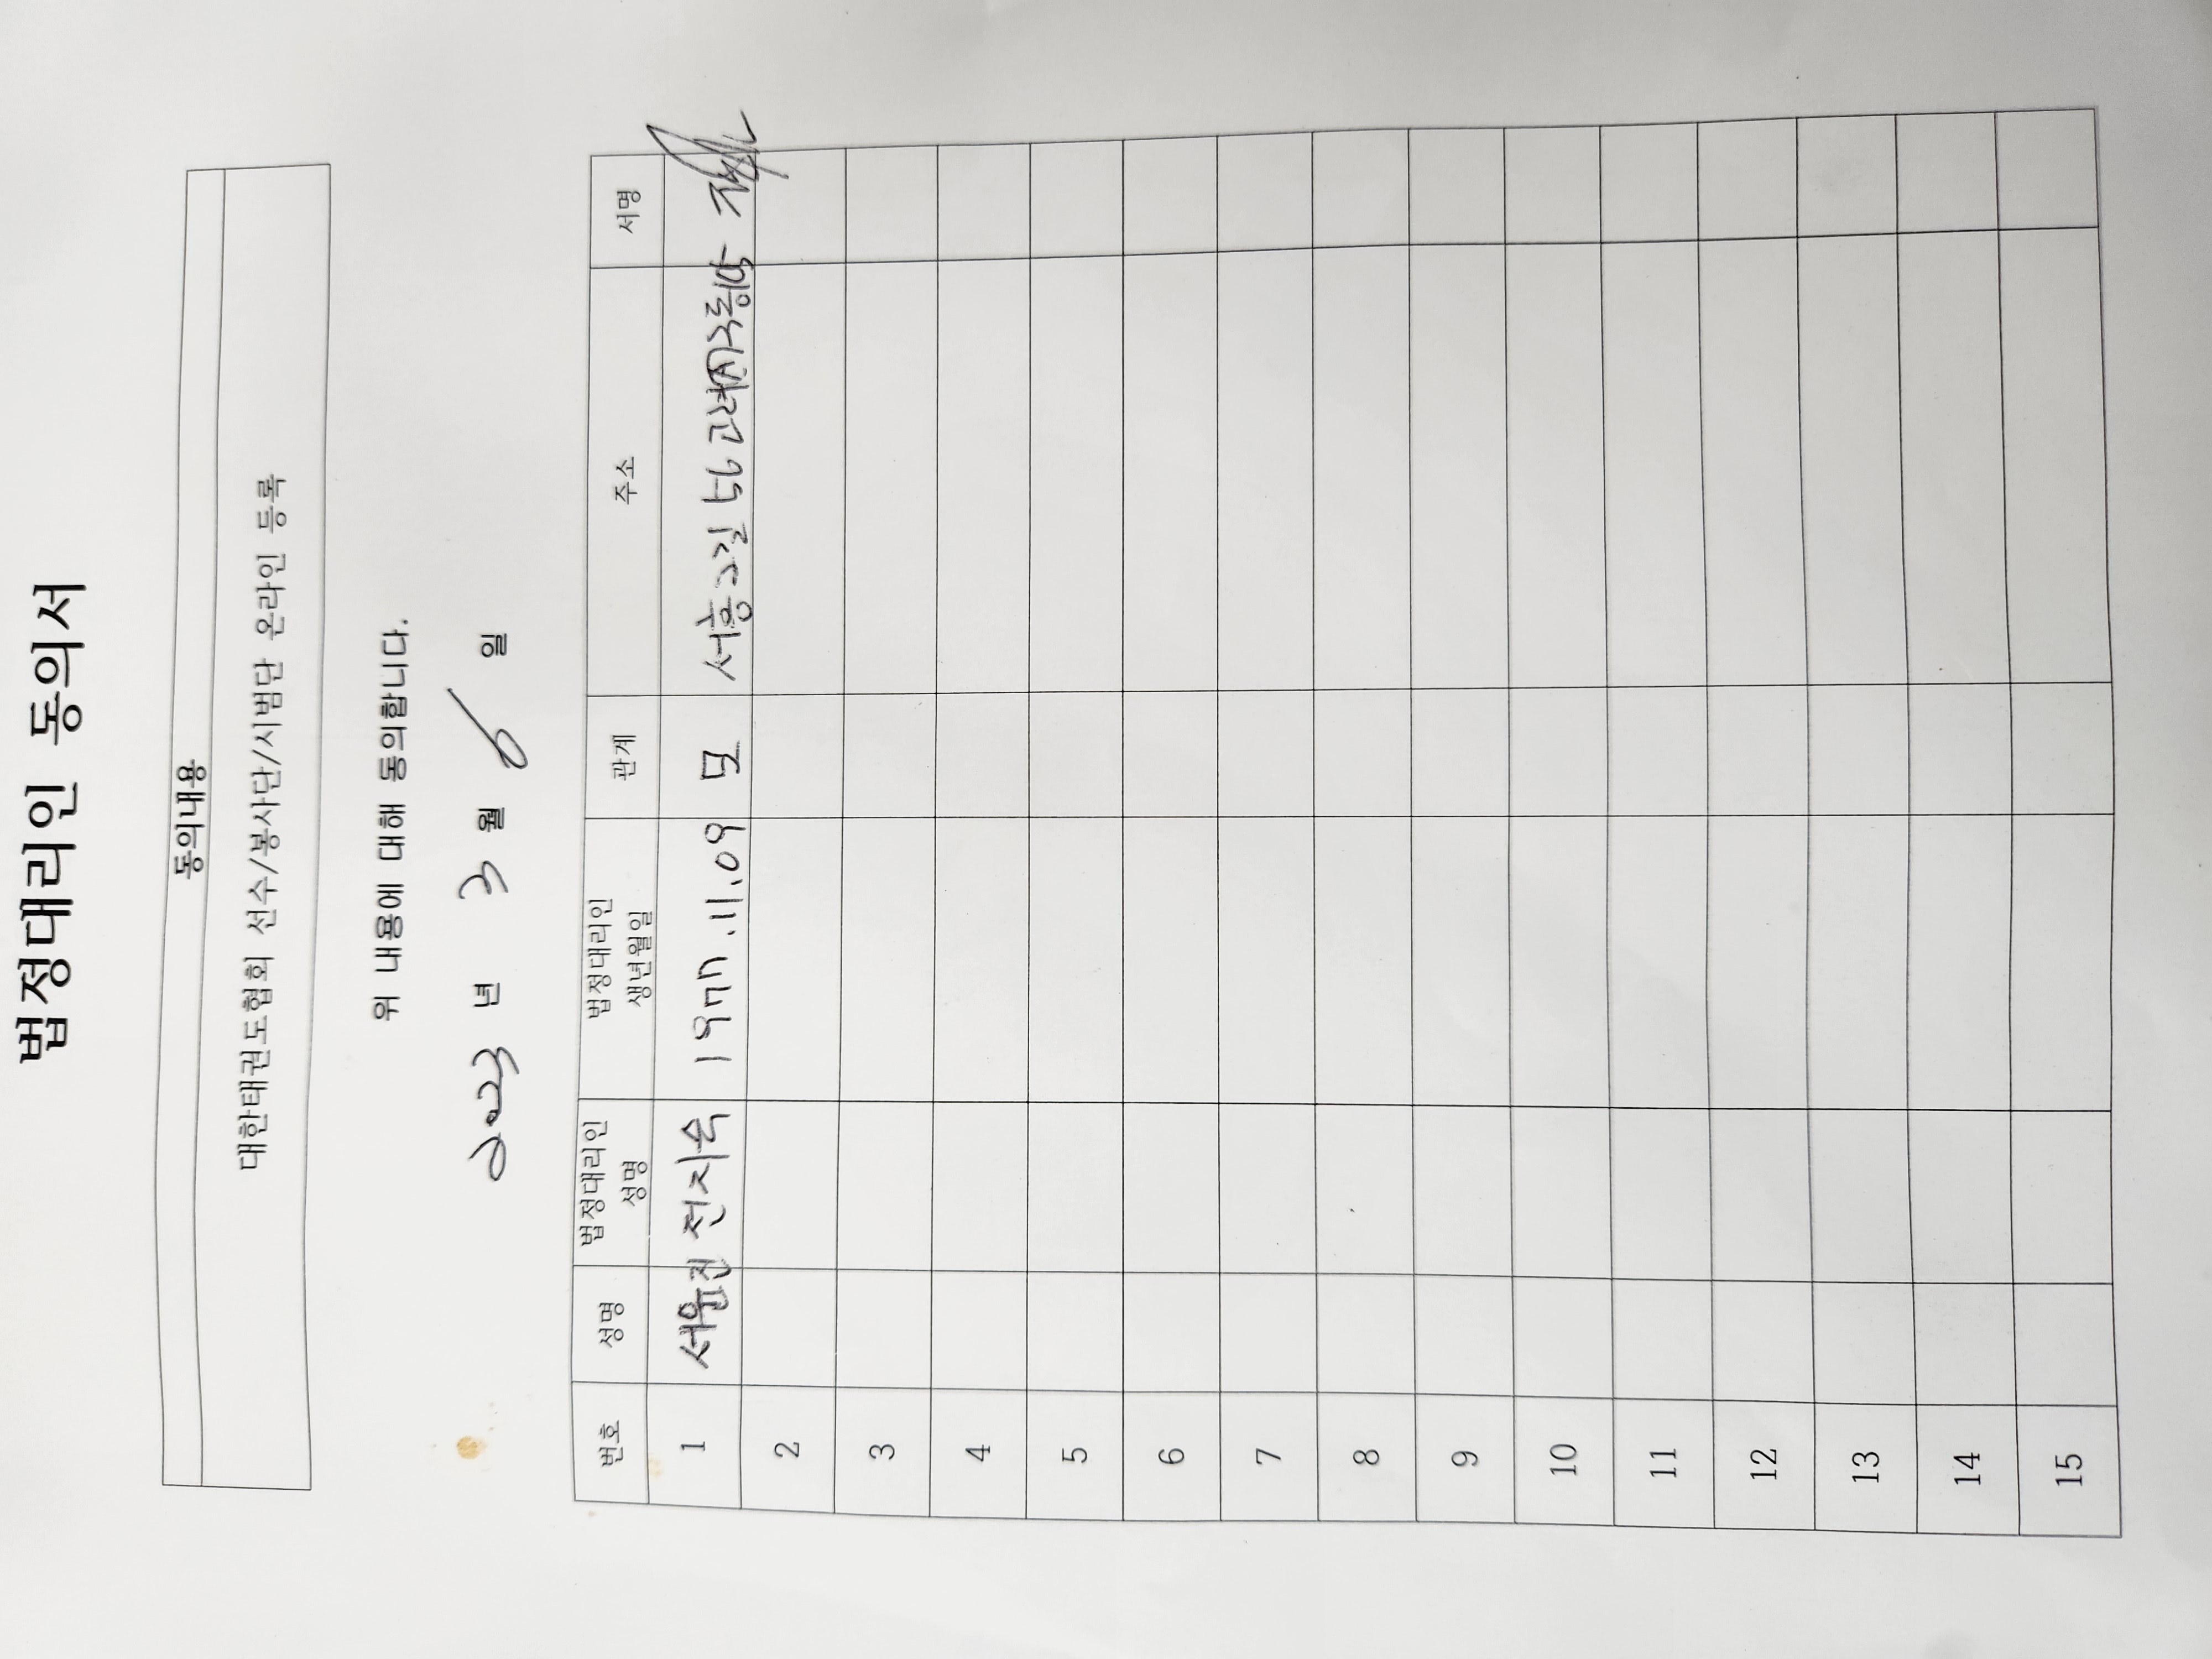 법정대리인 동의서
동의내용
대한태권도협회 선수/봉사단/시범단 온라인 등록
위 내용에 대해 동의합니다.
2023 년 3 월 6 일
번호 성명 법정대리인 성명 법정대리인 생년월일 관계 주소 서명
1 전지숙 1977.11.09 모 서흥2길 56 고려
2
3
4
5
6
7
8
9
10
11
12
13
14
15